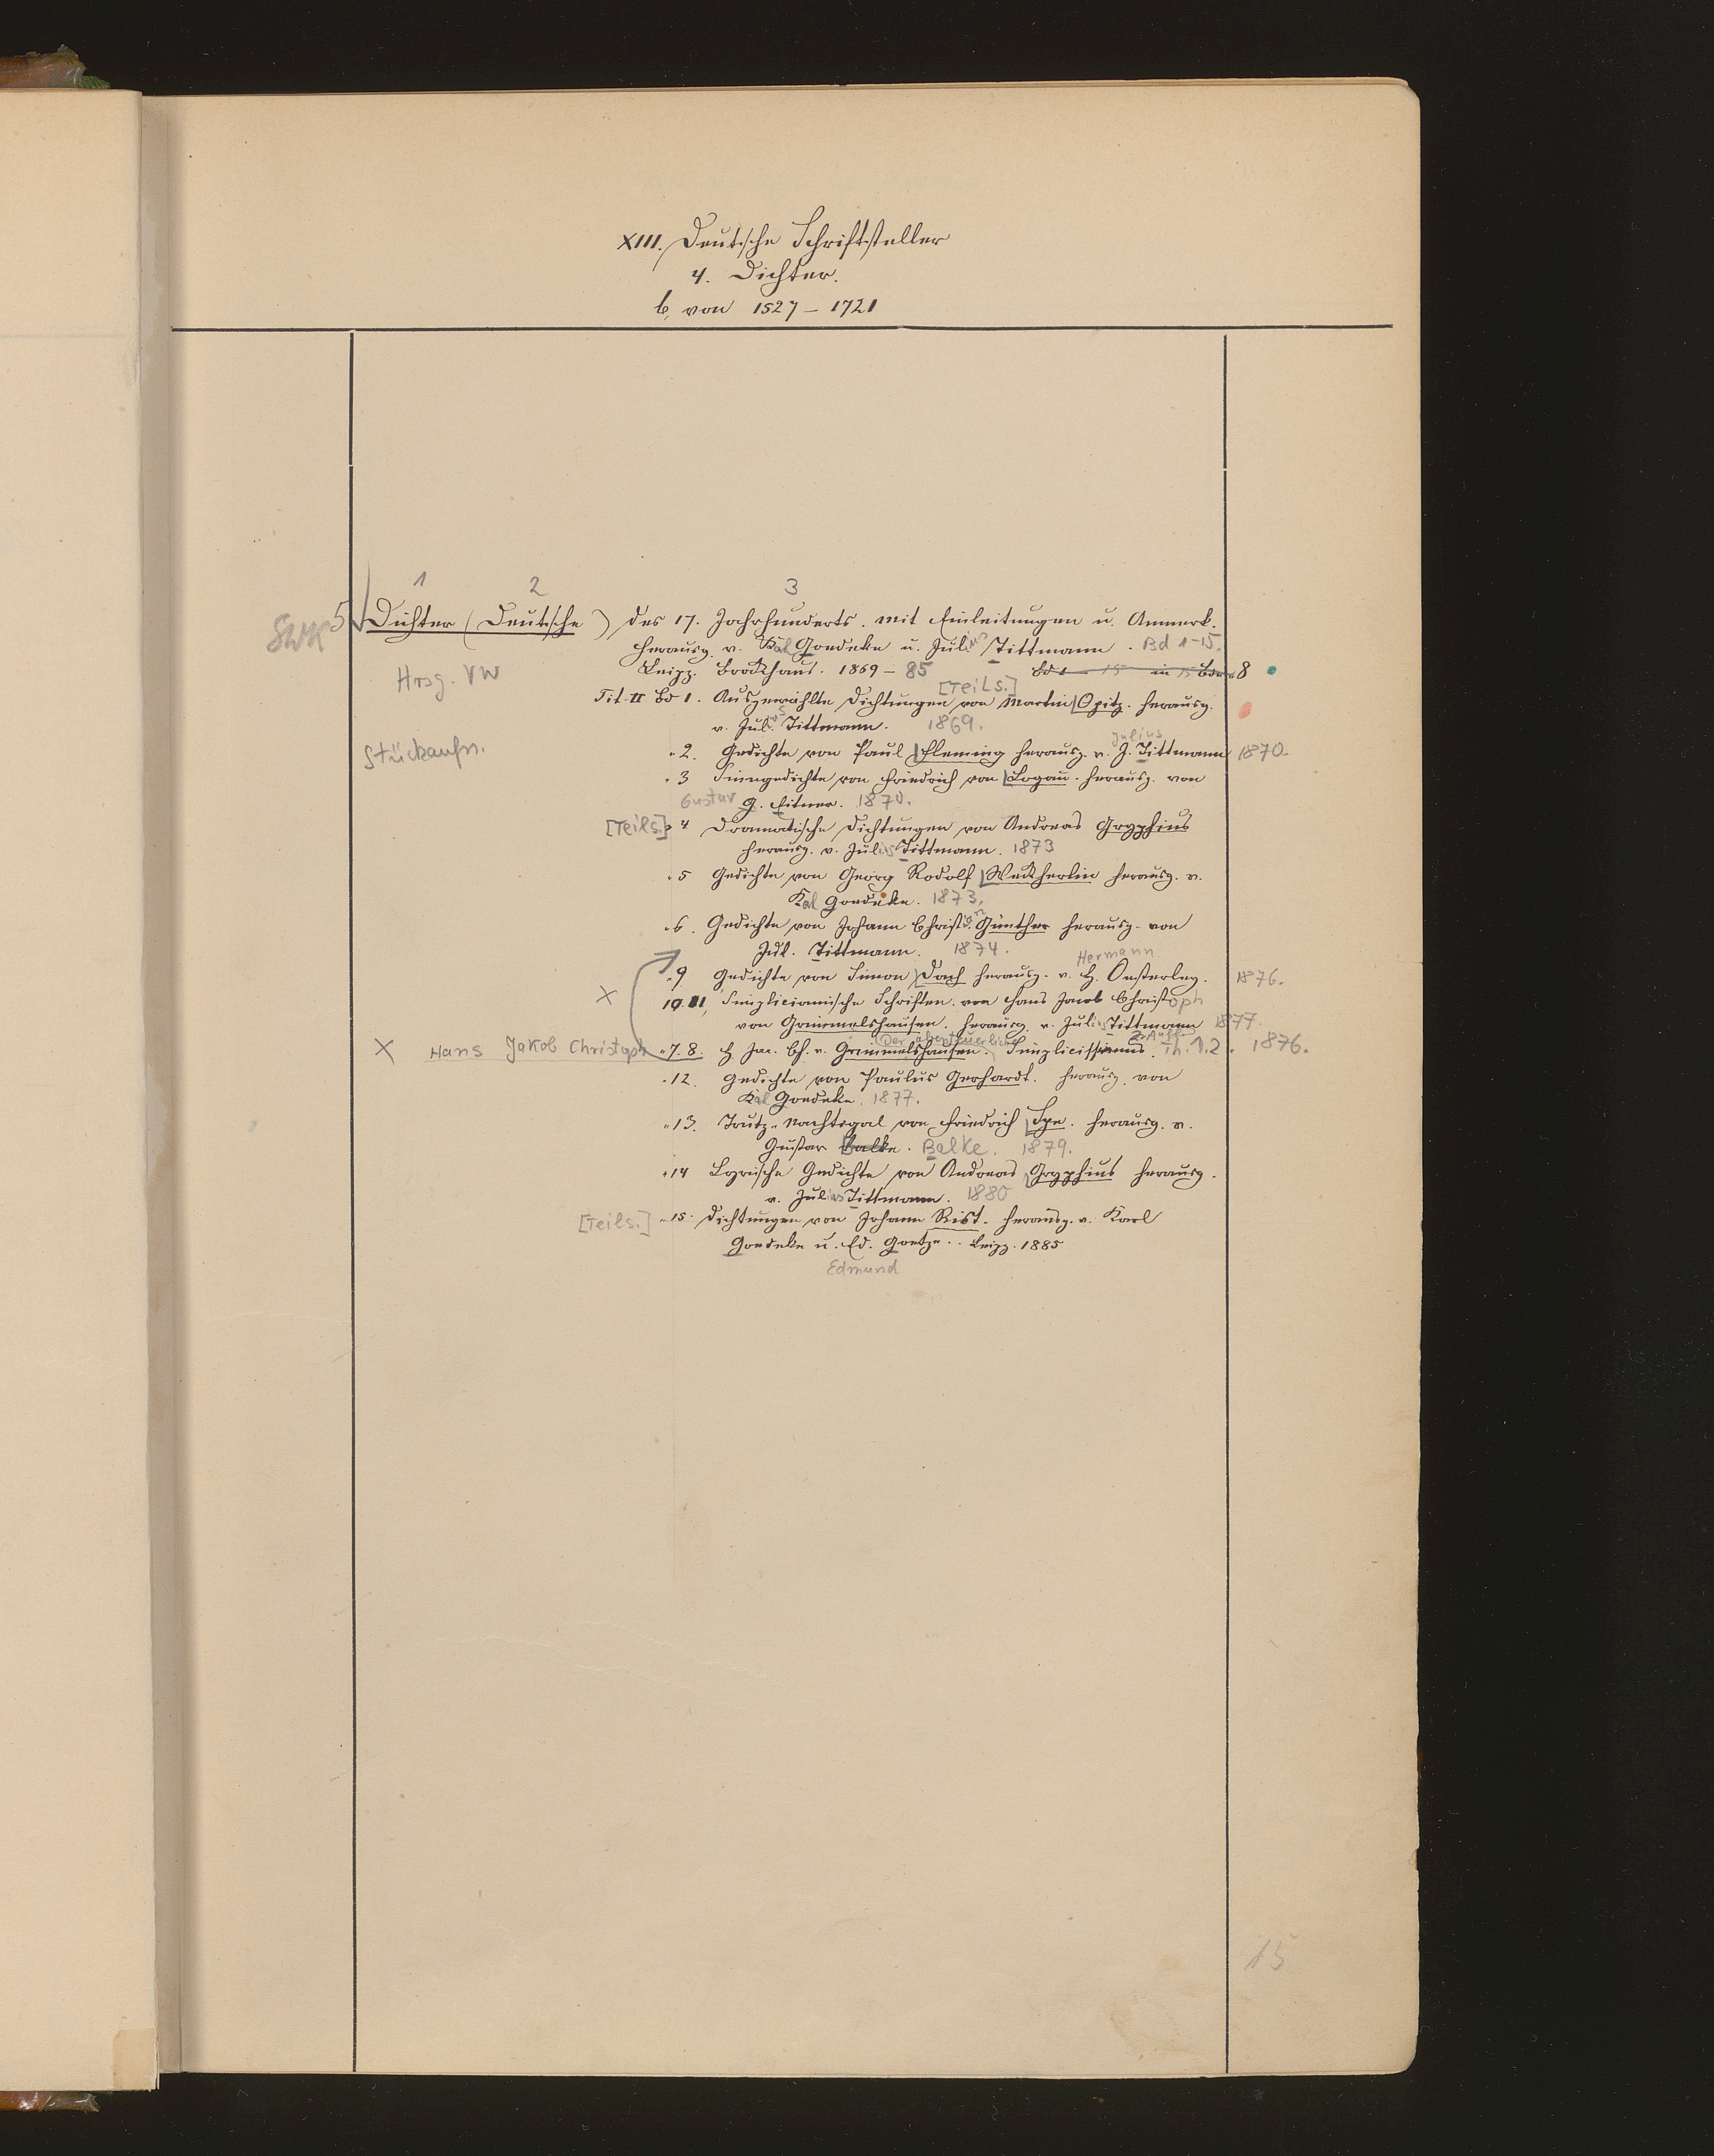 XIII. Deutsche Schriftsteller
4. Dichter.
b, von 1527 – 1721
1 2 3
SWK 5 Dichter (Deutsche) des 17. Jahrhunderts. Mit Einleitungen u. Anmerk.
herausg. v. Karl Goedeke u. Julius Tittmann. Bd 1-15.
Hrsg. VW Leipz. Brockhaus. 1869 – 85 Bd 1 – 15 in 15 Bden 8
Tit. II Bd 1. Ausgewählte Dichtungen von Martin Opitz. herausg. [Teils.]
v. Julius Tittmann. 1869.
Stückaufn. " 2. Gedichte von Paul Fleming herausg. v. J. Tittmann Julius 1870.
" 3 Sinngedichte von Friedrich von Logau. herausg. von
Gustav G. Eitner. 1870.
[Teils.] " 4 Dramatische Dichtungen von Andreas Gryphius
herausg. v. Julius Tittmann. 1873
" 5 Gedichte von Georg Rodolf Weckherlin herausg. v.
Karl Goedeke. 1873.
" 6. Gedichte von Johann Christian Günther herausg. von
Jul. Tittmann. 1874.
" 9 Gedichte von Simon Dach herausg. v. H. Oesterley. Hermann 1876.
X 10. 11, Simplicianische Schriften. von Hans Jacob Christoph
von Grimmelshausen. herausg. v. Julius Tittmann 1877.
X Hans Jakob Christoph " 7. 8. H. Jac. Ch. v. Grimmelshausen. (Der abenteuerliche) Simplicissimus. 2. Aufl. Th. 1.2. 1876.
" 12. Gedichte von Paulus Gerhardt. herausg. von
Karl Goedeke. 1877.
" 13. Trutz-Nachtigal von Friedrich Spe. herausg. v.
Gustav Balke. Balke. 1879.
" 14 Lyrische Gedichte von Andreas Gryphius herausg.
v. Julius Tittmann. 1880
[Teils.] " 15. Dichtungen von Johann Rist. herausg. v. Karl
Goedeke u. Ed. Goetze. Leipz. 1885
Edmund
15